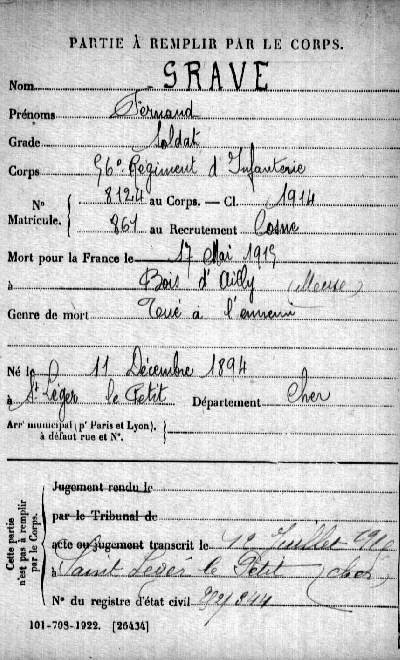 PARTIE À REMPLIR PAR LE CORPS.
Nom GRAVE
Prénoms Fernand
Grade Soldat
Corps 56e Régiment d'Infanterie
No 8124 au Corps. — Cl. 1914
Matricule. 861 au Recrutement Cosne
Mort pour la France le 17 Mai 1915
à Bois d'Ailly (Meuse)
Genre de mort Tué à l'ennemi
Né le 11 Décembre 1894
à St Léger le Petit Département Cher
Arrt municipal (pr Paris et Lyon),
à défaut rue et No.
Cette partie
n'est pas à remplir
par le Corps.
Jugement rendu le
par le Tribunal de
acte ou jugement transcrit le Juillet
à Saint Léger le Petit (Cher)
No du registre d'état civil
101-708-1922. [26434]